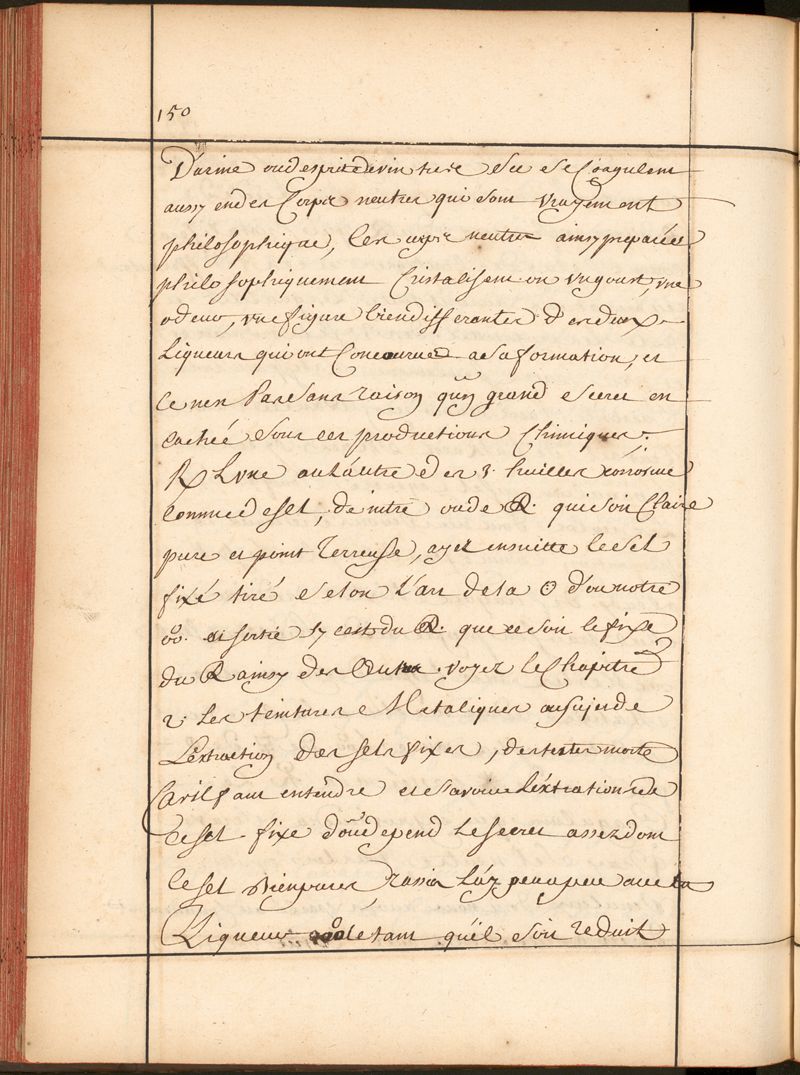 150
D'urine oud esprit devin tiré du se Coagulent
aussy ender Corps neutres qui sont vrayement
philosophique, ler corps neutre ainsy preparéer
philosophiquement Cristalisent on vngoust, vne
odeur, vne figure bien differanter d er deux
Liqueurs qui ont Concourue a sa formation, et
ce nest Pas sans raison quun grand secret en
cachéé sour cer productions Chimiquer.
R L'vne au Lautre der 3. huiller corrosive
comme de sel, de nitre oude R. qui soit Claire
pure et point Terreuse, ayez ensuitte le sel
fixé tiré selon L'art de la ☉ d'ou notre
oo. est sortie sy cest du R. que ce soit le fixe
du R ainsy der Autre. voyez le Chapitre
2. Ler teinturer Metaliquer au sujet de
L'extraction der selr fixer, der tester morte
Car il faut entendre et sçavoir L'extration de
ce sel fixe dou depend le secret assez dom
le sel bien purer peu a peu avec la
Liqueur oo le tant quéil soit reduit